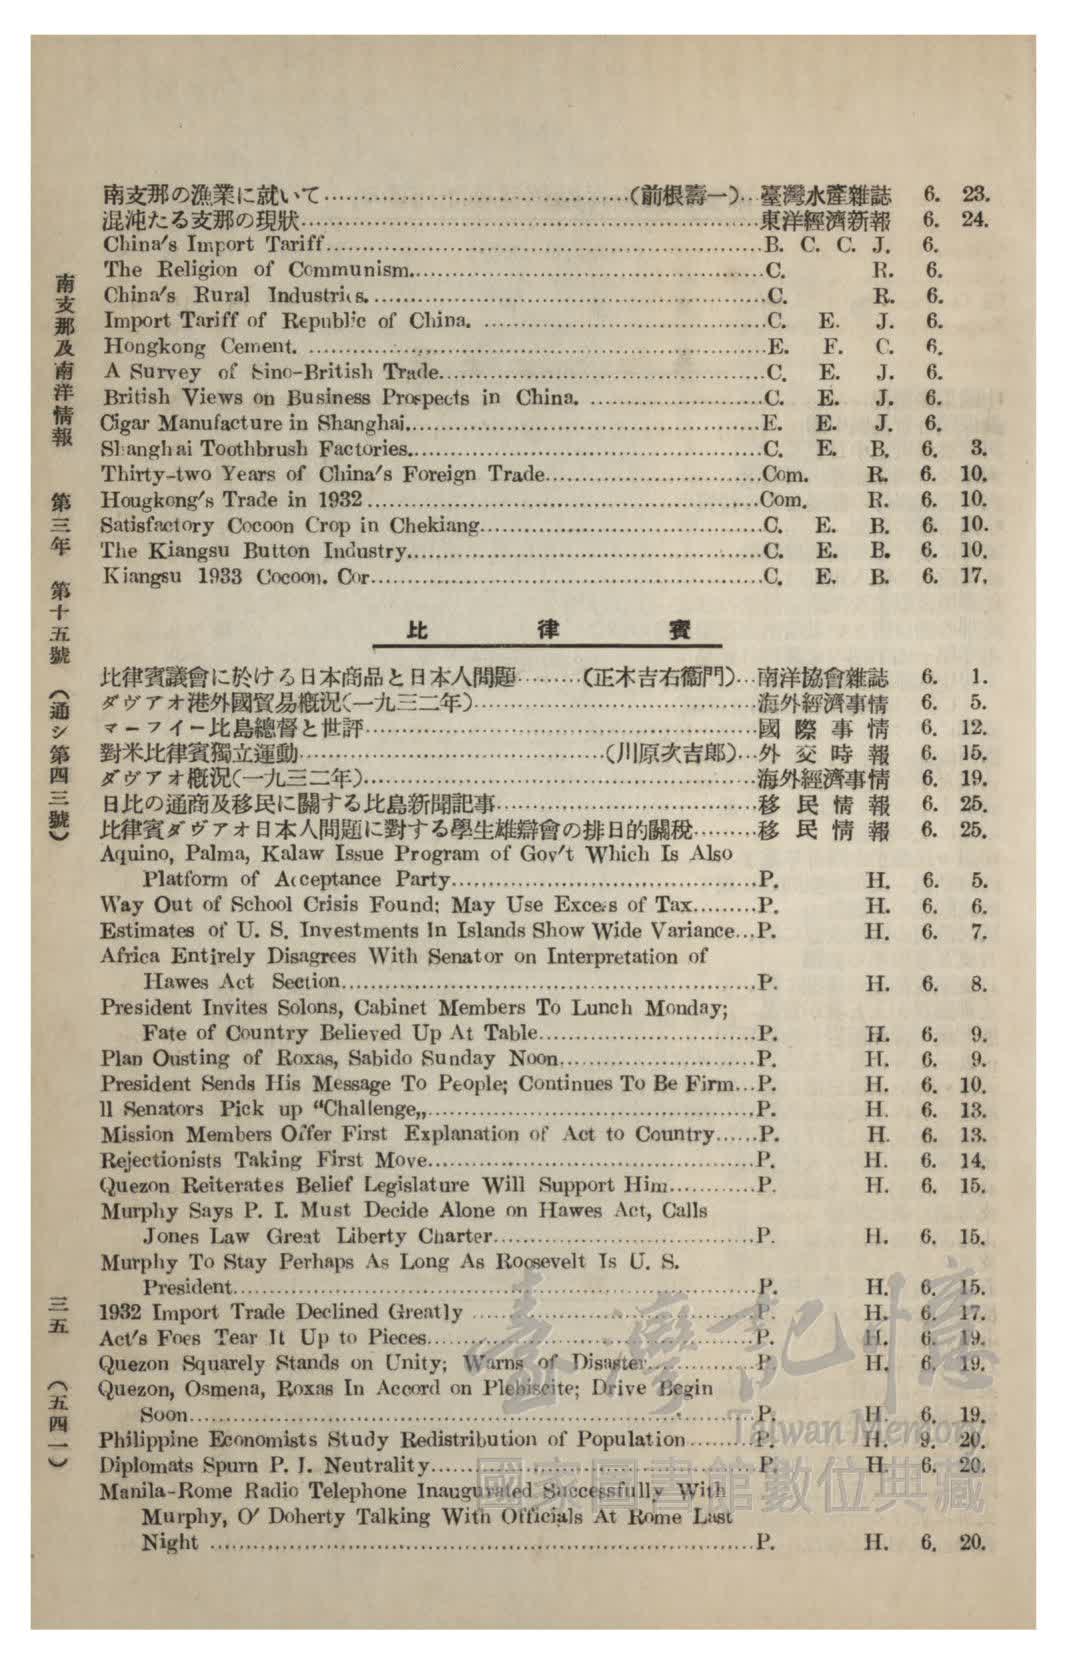 南支那の漁業に就いて……(前根壽一)…臺灣水產雜誌 6. 23.
混沌たる支那の現狀……東洋經濟新報 6. 24.
China's Import Tariff……B. C. C. J. 6.
The Religion of Communism……C. R. 6.
China's Rural Industries.……C. R. 6.
Import Tariff of Republic of China. ……C. E. J. 6.
Hongkong Cement. ……E. F. C. 6.
A Survey of Sino-British Trade……C. E. J. 6.
British Views on Business Prospects in China. ……C. E. J. 6.
Cigar Manufacture in Shanghai……E. E. J. 6.
Shanghai Toothbrush Factories……C. E. B. 6. 3.
Thirty-two Years of China's Foreign Trade……Com. R. 6. 10.
Hougkong's Trade in 1932……Com. R. 6. 10.
Satisfactory Cocoon Crop in Chekiang……C. E. B. 6. 10.
The Kiangsu Button Industry……C. E. B. 6. 10.
Kiangsu 1933 Cocoon. Cor……C. E. B. 6. 17.
比律賓
比律賓議會に於ける日本商品と日本人問題……(正木吉右衞門)…南洋協會雜誌 6. 1.
ダヴアオ港外國貿易槪況(一九三二年)……海外經濟事情 6. 5.
マーフイー比島總督と世評……國際事情 6. 12.
對米比律賓獨立運動……(川原次吉郎)…外交時報 6. 15.
ダヴアオ槪況(一九三二年)……海外經濟事情 6. 19.
日比の通商及移民に關する比島新聞記事……移民情報 6. 25.
比律賓ダヴアオ日本人問題に對する學生雄辯會の排日的關稅……移民情報 6. 25.
Aquino, Palma, Kalaw Issue Program of Gov't Which Is Also
Platform of Acceptance Party……P. H. 6. 5.
Way Out of School Crisis Found: May Use Excess of Tax……P. H. 6. 6.
Estimates of U. S. Investments In Islands Show Wide Variance…P. H. 6. 7.
Africa Entirely Disagrees With Senator on Interpretation of
Hawes Act Section……P. H. 6. 8.
President Invites Solons, Cabinet Members To Lunch Monday;
Fate of Country Believed Up At Table……P. H. 6. 9.
Plan Ousting of Roxas, Sabido Sunday Noon……P. H. 6. 9.
President Sends His Message To People; Continues To Be Firm…P. H. 6. 10.
11 Senators Pick up “Challenge„……P. H. 6. 13.
Mission Members Offer First Explanation of Act to Country……P. H. 6. 13.
Rejectionists Taking First Move……P. H. 6. 14.
Quezon Reiterates Belief Legislature Will Support Him……P. H. 6. 15.
Murphy Says P. I. Must Decide Alone on Hawes Act, Calls
Jones Law Great Liberty Charter……P. H. 6. 15.
Murphy To Stay Perhaps As Long As Roosevelt Is U. S.
President……P. H. 6. 15.
1932 Import Trade Declined Greatly ……P. H. 6. 17.
Act's Foes Tear It Up to Pieces……P. H. 6. 19.
Quezon Squarely Stands on Unity; Warns of Disaster……P. H. 6. 19.
Quezon, Osmena, Roxas In Accord on Plebiscite; Drive Begin
Soon……P. H. 6. 19.
Philippine Economists Study Redistribution of Population……P. H. 9. 20.
Diplomats Spurn P. I. Neutrality……P. H. 6. 20.
Manila-Rome Radio Telephone Inaugurated Successfully With
Murphy, O' Doherty Talking With Officials At Rome Last
Night ……P. H. 6. 20.
南支那及南洋情報 第三年 第十五號 (通シ第四三號)
三五 (五四一)
臺灣記憶
Taiwan Memory
國家圖書館數位典藏